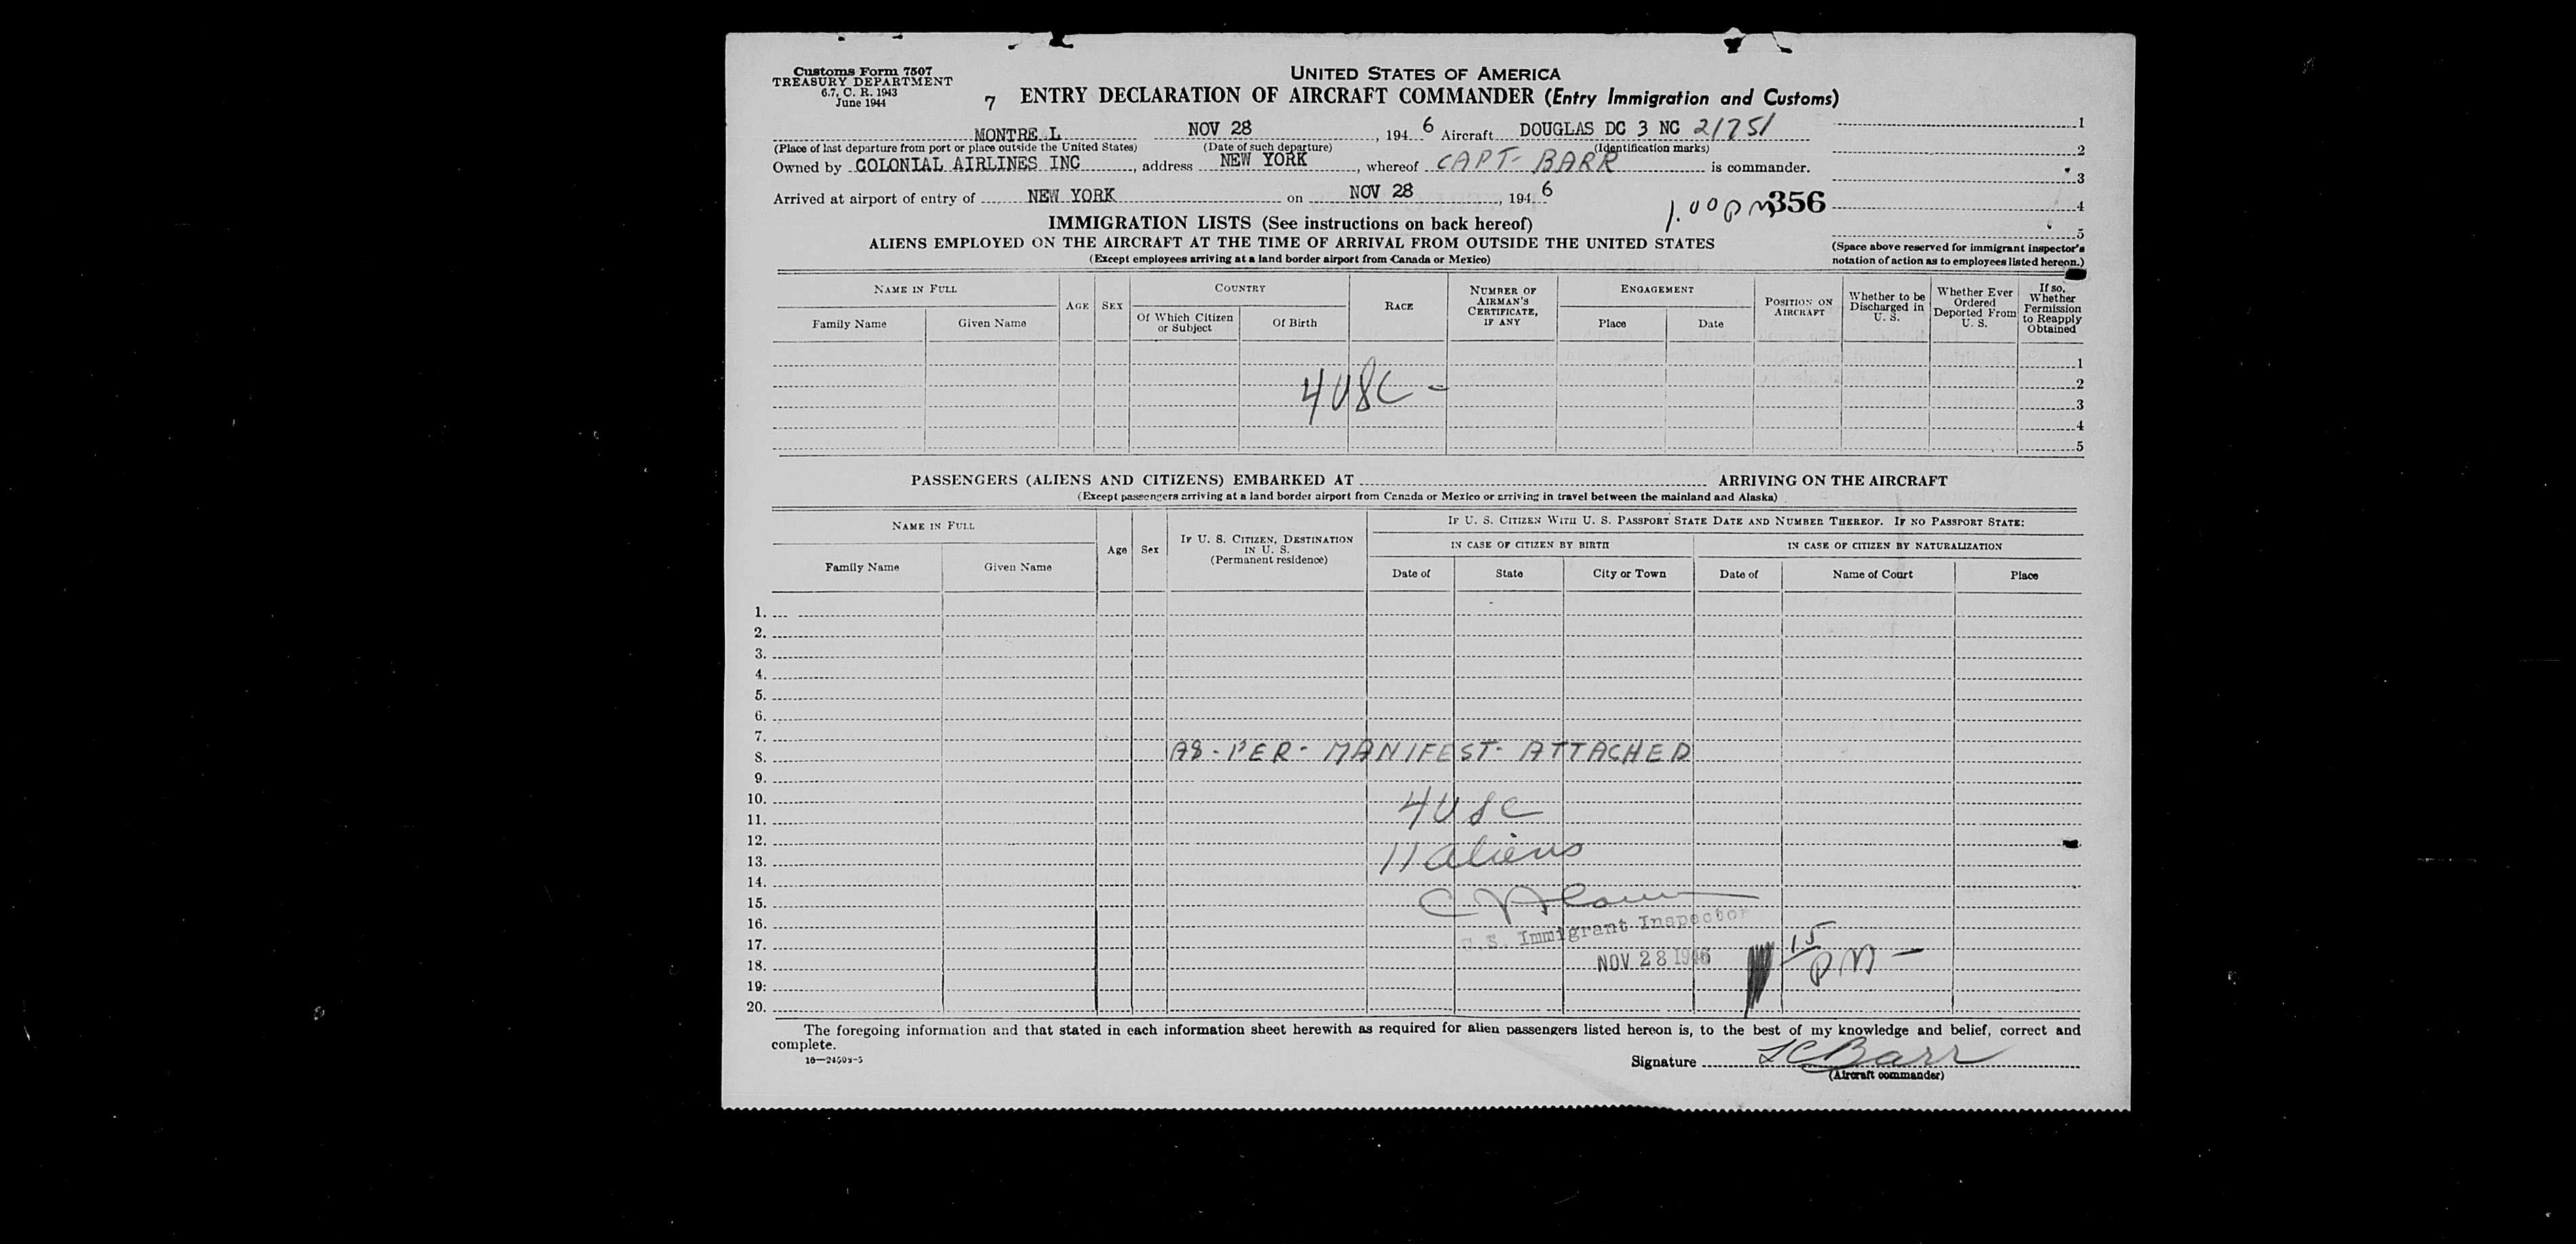 Customs Form 7507
TREASURY DEPARTMENT
6.7, C. R. 1943
June 1944
UNITED STATES OF AMERICA
7 ENTRY DECLARATION OF AIRCRAFT COMMANDER (Entry Immigration and Customs)
MONTRE L NOV 28, 194 6 Aircraft DOUGLAS DC 3 NC 21751
(Place of last departure from port or place outside the United States) (Date of such departure) (Identification marks)
Owned by COLONIAL AIRLINES INC, address NEW YORK, whereof CAPT- BARR is commander.
Arrived at airport of entry of NEW YORK on NOV 28, 194 6
1.00 PM 356
1
2
3
4
5
(Space above reserved for immigrant inspector's notation of action as to employees listed hereon.)
IMMIGRATION LISTS (See instructions on back hereof)
ALIENS EMPLOYED ON THE AIRCRAFT AT THE TIME OF ARRIVAL FROM OUTSIDE THE UNITED STATES
(Except employees arriving at a land border airport from Canada or Mexico)
NAME IN FULL
Family Name Given Name
AGE SEX
COUNTRY
Of Which Citizen or Subject Of Birth
RACE
NUMBER OF AIRMAN'S CERTIFICATE, IF ANY
ENGAGEMENT
Place Date
POSITION ON AIRCRAFT
Whether to be Discharged in U. S.
Whether Ever Ordered Deported From U. S.
If so, Whether Permission to Reapply Obtained
1
2
4 USC -
3
4
5
PASSENGERS (ALIENS AND CITIZENS) EMBARKED AT ARRIVING ON THE AIRCRAFT
(Except passengers arriving at a land border airport from Canada or Mexico or arriving in travel between the mainland and Alaska)
NAME IN FULL
Family Name Given Name
Age Sex
IF U. S. CITIZEN, DESTINATION IN U. S.
(Permanent residence)
IF U. S. CITIZEN WITH U. S. PASSPORT STATE DATE AND NUMBER THEREOF. IF NO PASSPORT STATE:
IN CASE OF CITIZEN BY BIRTH IN CASE OF CITIZEN BY NATURALIZATION
Date of State City or Town Date of Name of Court Place
1.
2.
3.
4.
5.
6.
7.
8. AS - PER - MANIFEST - ATTACHED
9.
10.
11. 4 USC
12.
13. 11 aliens
14.
15.
16. U.S. Immigrant Inspector
17.
18. NOV 28 1946 1 15 PM -
19.
20.
The foregoing information and that stated in each information sheet herewith as required for alien passengers listed hereon is, to the best of my knowledge and belief, correct and
complete.
16—24503-5
Signature L C Barr
(Aircraft commander)